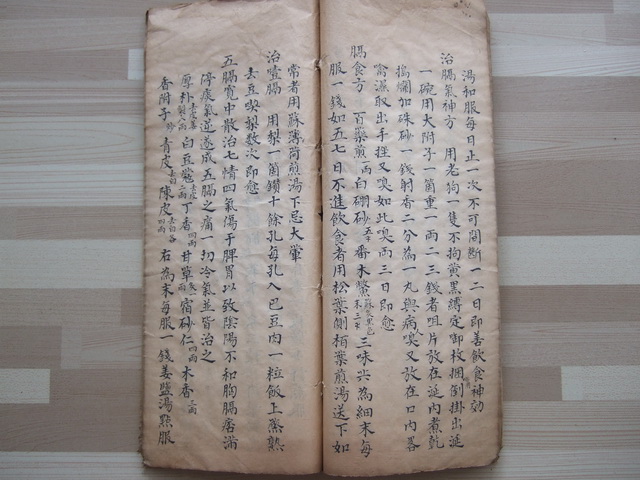 湯和服每日止一次不可間斷一二日即善飲食神効
治膈氣神方　用老狗一隻不拘黄黑縛定卸枚捆倒掛出涎
一碗用大附子一箇重一両二三錢者咀片放在涎內煮乾
搗爛加硃砂一錢射香二分為一丸與病人嗅又放在口內畧
噙濕取出手挫又嗅如此嗅両三日即愈
膈食方　百藥煎一両白硼砂五錢番木鱉蘇製黑色末三錢三味共為細末每
服一錢如五七日不進飲食者用松葉側栢葉煎湯送下如
常者用蘇薄荷煎湯下忌大葷
治噎膈　用梨一箇鑚十餘孔每孔入巴豆肉一粒飯上蒸熟
去豆喫梨数次即愈
五膈寬中散治七情四氣傷于脾胃以致陰陽不和胸膈痞滿
停痰氣逆遂成五膈之病一切冷氣並皆治之
厚朴　白豆蔻　丁香四両甘草　宿砂仁四両木香三両
香附子炒　青皮去白　陳皮去白各四両右為末每服一錢姜盬湯㸃服